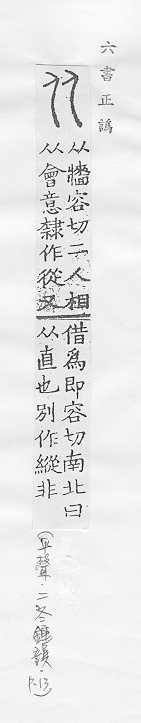 六書正譌
从牆容切二人相
从會意隸作從又
借為即容切南北曰
从直也別作縱非
(平聲·二冬鍾韻·P.13)